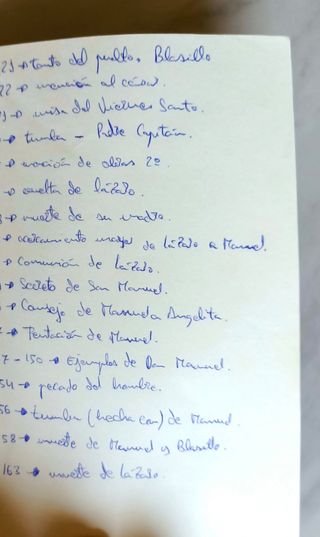 21 → tonto del pueblo, Blasillo
22 → mención al cónsul.
→ misa del Viernes Santo.
→ tumba - Padre Capitán.
→ de obras 2º
→ vuelta de lázaro.
→ muerte de su madre.
→ acercamiento mayor de lázaro a Manuel.
→ Comunión de lázaro.
→ Secreto de San Manuel.
→ Consejo de Manuel a Angelita.
→ Tentación de Manuel.
7 - 150 → Ejemplos de Don Manuel.
54 → pecado del hombre.
56 → tumba (hecha con) de Manuel.
58 → muerte de Manuel y Blasillo.
163 → muerte de lázaro.